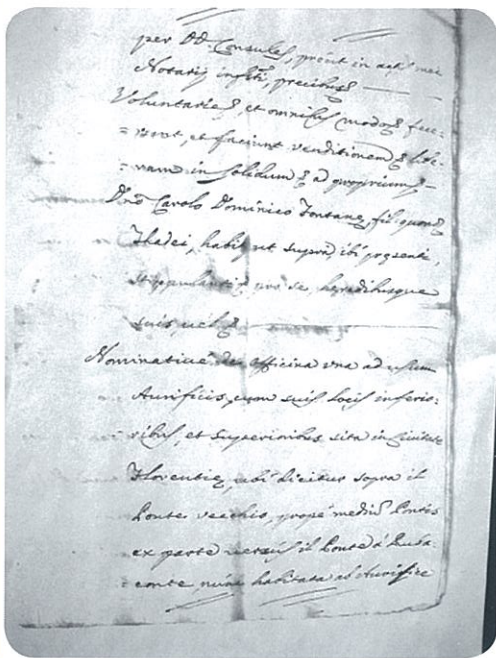 per DD. Consules, prout in actis mei
Notarij infrti, precibus
Voluntarie &, et omnibus modo & fue=
=runt, et faciunt venditionem & libe=
=ram in solidum & ad proprium &
Dno Carolo Dominico Fontane, fil quond
Thadei, habit ut supra, ibi presenti,
stipulanti, pro se, heredibusque
suis, vel &
Nominative de officina una ad usum
Aurificis, cum suis locis inferio:
ribus, et superioribus, sita in Civitate
Florentie, ubi dicitur sopra il
Ponte vecchio, prope mediu Pontis
ex parte versus il Ponte à Ruba:
conte, nunc habitata ab Aurifice